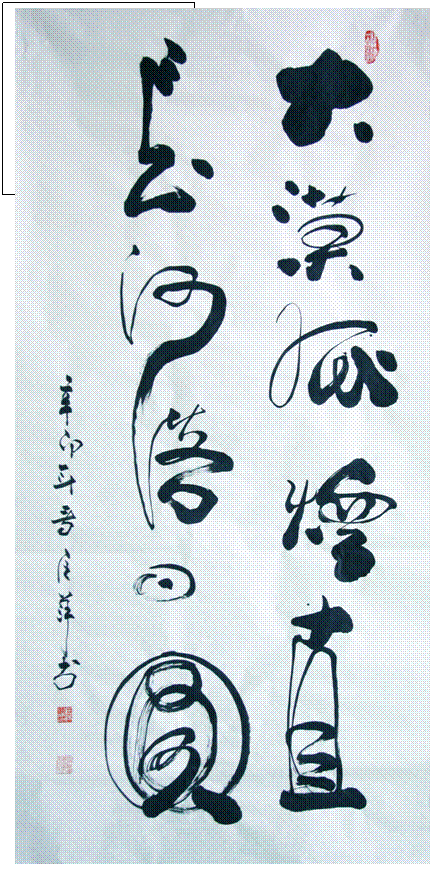 大漠孤煙直
長河落日圓
辛卯年春萍书